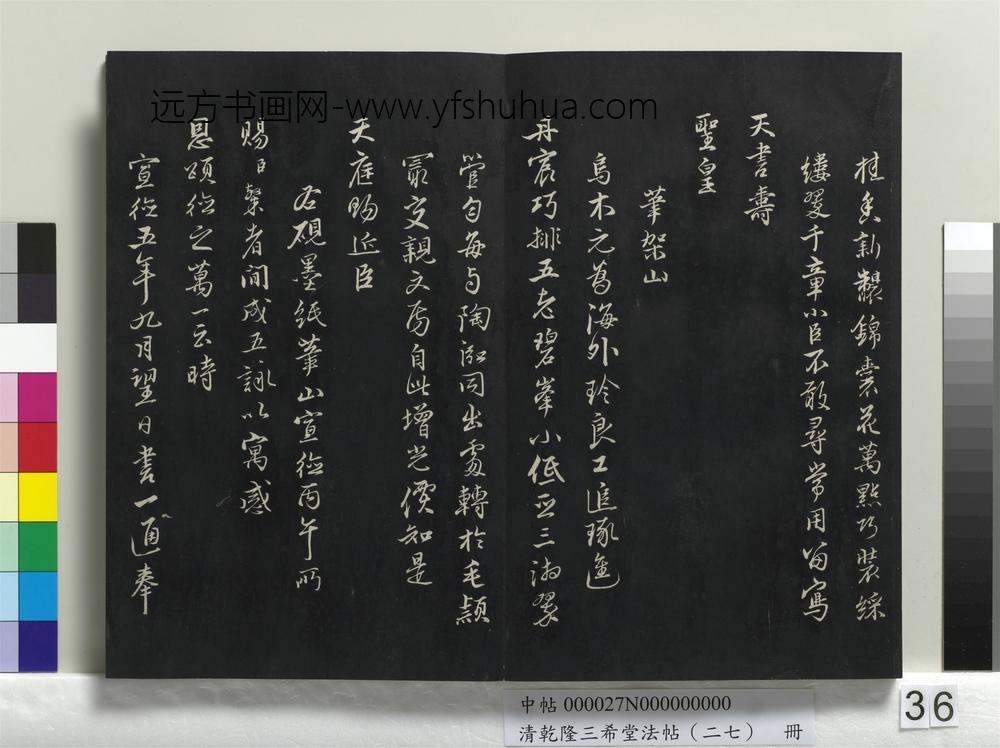 桂香新製錦雲花萬點巧裝綵
縷翠千章小臣不敢尋常用留寫
天書壽
聖皇
筆架山
烏木元為海外珍良工追琢進
丹宸巧排五老碧峯小低亞三湘翠
管勻每與陶泓同出處轉於毛穎
最交親文房自此增光價知是
天庭賜近臣
右硯墨紙筆山宣德丙午所
賜臣榮者間成五詠以寓感
恩頌德之萬一云時
宣德五年九月望日書一通奉
远方书画网-www.yfshuhua.com
中帖 000027N000000000
清乾隆三希堂法帖（二七） 冊
36